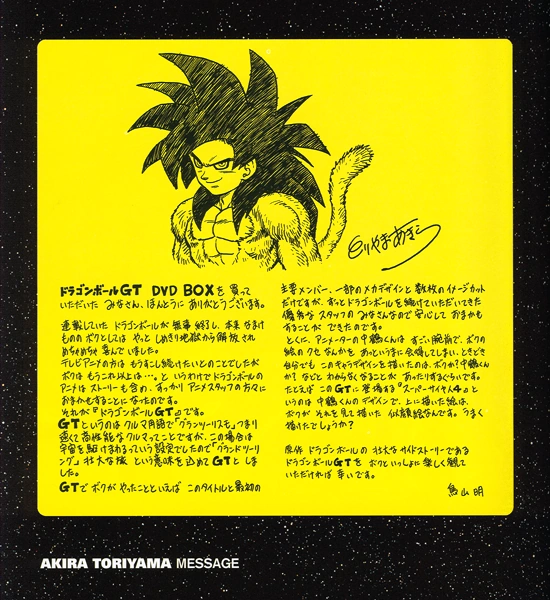 とりやまあきら
ドラゴンボールGT DVD BOXを買って
いただいた みなさん、ほんとうに ありがとうございます。
連載していた ドラゴンボールが無事終了し、本来なまけ
ものの ボクとしては やっと しめきり地獄から解放され
めちゃめちゃ喜んでいました。
テレビアニメの方は もうすこし続けたいとのことでしたが
ボクは もうこれ以上は…。と いうわけで ドラゴンボールの
アニメは ストーリーも含め、すっかり アニメスタッフの方々に
おまかせすることになったのです。
それが『ドラゴンボールGT』です。
GTというのは クルマ用語で「グランツーリスモ」、つまり
速くて高性能なクルマってことですが、この場合は
宇宙を駆けまわるっていう設定でしたので「グランドツーリ
ング」、壮大な旅 という意味を込めて GTと しま
した。
GTで ボクが やったことといえば このタイトルと最初の
主要メンバー、一部のメカデザインと 数枚のイメージカット
だけですが、ずっとドラゴンボールを続けていただいてきた
優秀な スタッフの みなさんなので 安心して おまかせ
することが できたのです。
とくに、アニメーターの中鶴くんは すごい腕前で、ボクの
絵の クセ なんかも あっというまに 会得してしまい、ときどき
自分でも このキャラデザインを描いたのは、ボクか?中鶴くん
か? などと わからなくなることが あったりするぐらいです。
たとえば このGTに登場する『スーパーサイヤ人4』と
いうのは 中鶴くんの デザインで、上に描いた絵は、
ボクが それを見て描いた 似顔絵なんです。うまく
描けたでしょうか?
原作 ドラゴンボールの 壮大な サイドストーリーである
ドラゴンボールGTを ボクといっしょに 楽しく 観て
いただければ 幸いです。
鳥山明
AKIRA TORIYAMA MESSAGE